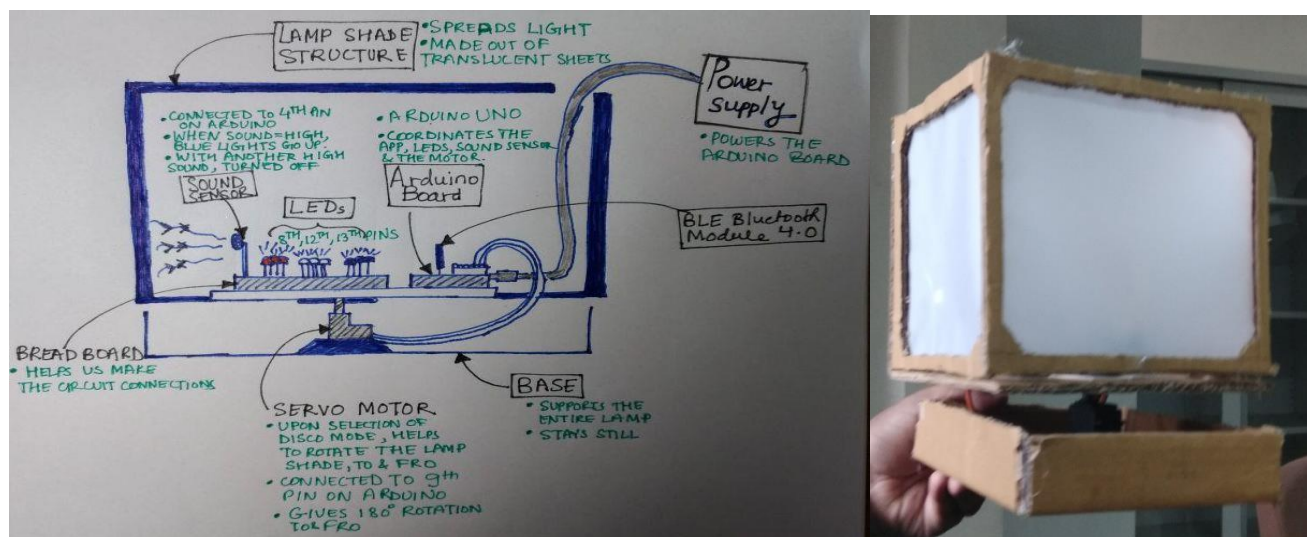 LAMP SHADE
STRUCTURE
• SPREADS LIGHT
• MADE OUT OF
TRANSLUCENT SHEETS
Power
supply
• POWERS THE
ARDUINO BOARD
• CONNECTED TO 4TH AN
ON ARDUINO
• WHEN SOUND=HIGH,
BLUE LIGHTS GO UP.
• WITH ANOTHER HIGH
SOUND, TURNED OFF
SOUND
SENSOR
• ARDUINO UNO
• COORDINATES THE
APP, LEDS, SOUND SENSOR
& THE MOTOR.
Arduino
Board
LEDs
8TH, 12TH, 13TH PINS
BLE Bluetooth
Module 4.0
BREAD BOARD
• HELPS US MAKE
THE CIRCUIT CONNECTIONS
SERVO MOTOR
• UPON SELECTION OF
DISCO MODE, HELPS
TO ROTATE THE LAMP
SHADE, TO & FRO
• CONNECTED TO 9th
PIN ON ARDUINO
• GIVES 180° ROTATION
TO & FRO
BASE
• SUPPORTS THE
ENTIRE LAMP
• STAYS STILL